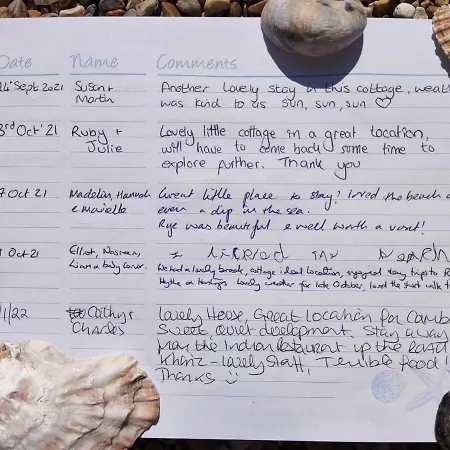 Date Name Comments
Sept 2021 Susan + Martin Another lovely stay in this cottage, weat
was kind to us sun, sun, sun ♡
3rd Oct '21 Ruby + Julie Lovely little cottage in a great location,
will have to come back some time to
explore further. Thank you
7 Oct 21 Madelin, Hannah & Great little place to stay! loved the beach
even a dip in the sea.
Rye was beautiful & well worth a visit!
Oct 21 Elliot,
We had a lovely break, cottage ideal location, enjoyed day trips to R
Hythe or Hastings lovely weather for late October, loved the short walk t
1/22 Cathy & Charles Lovely House, Great Location for Camb
Sweet, quiet development. Stay away
the Indian restaurant up the Road
lovely staff, Terrible food!
Thanks ☺